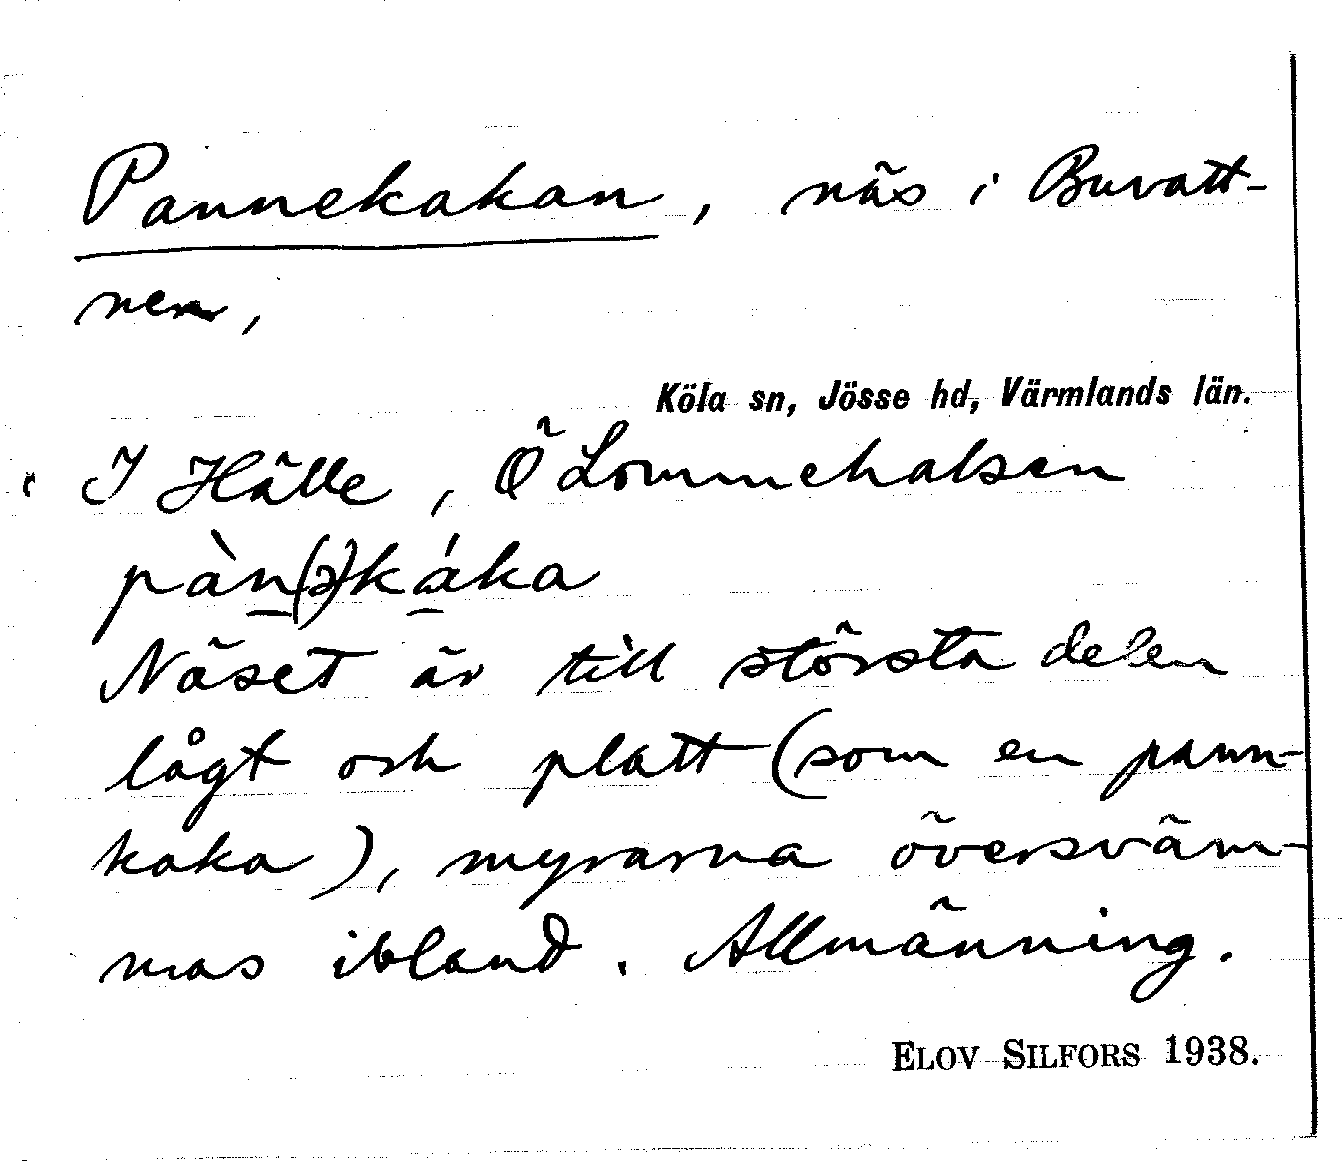 Pannekakan, näs i Buvatt-
nen,
Köla sn, Jösse hd, Värmlands län.
I Hälle, Ö Lommehalsen
pàn(ə)káka
Näset är till största delen
lågt och platt (som en pann-
kaka), myrarna översväm-
mas ibland. Allmänning.
ELOV SILFORS 1938.